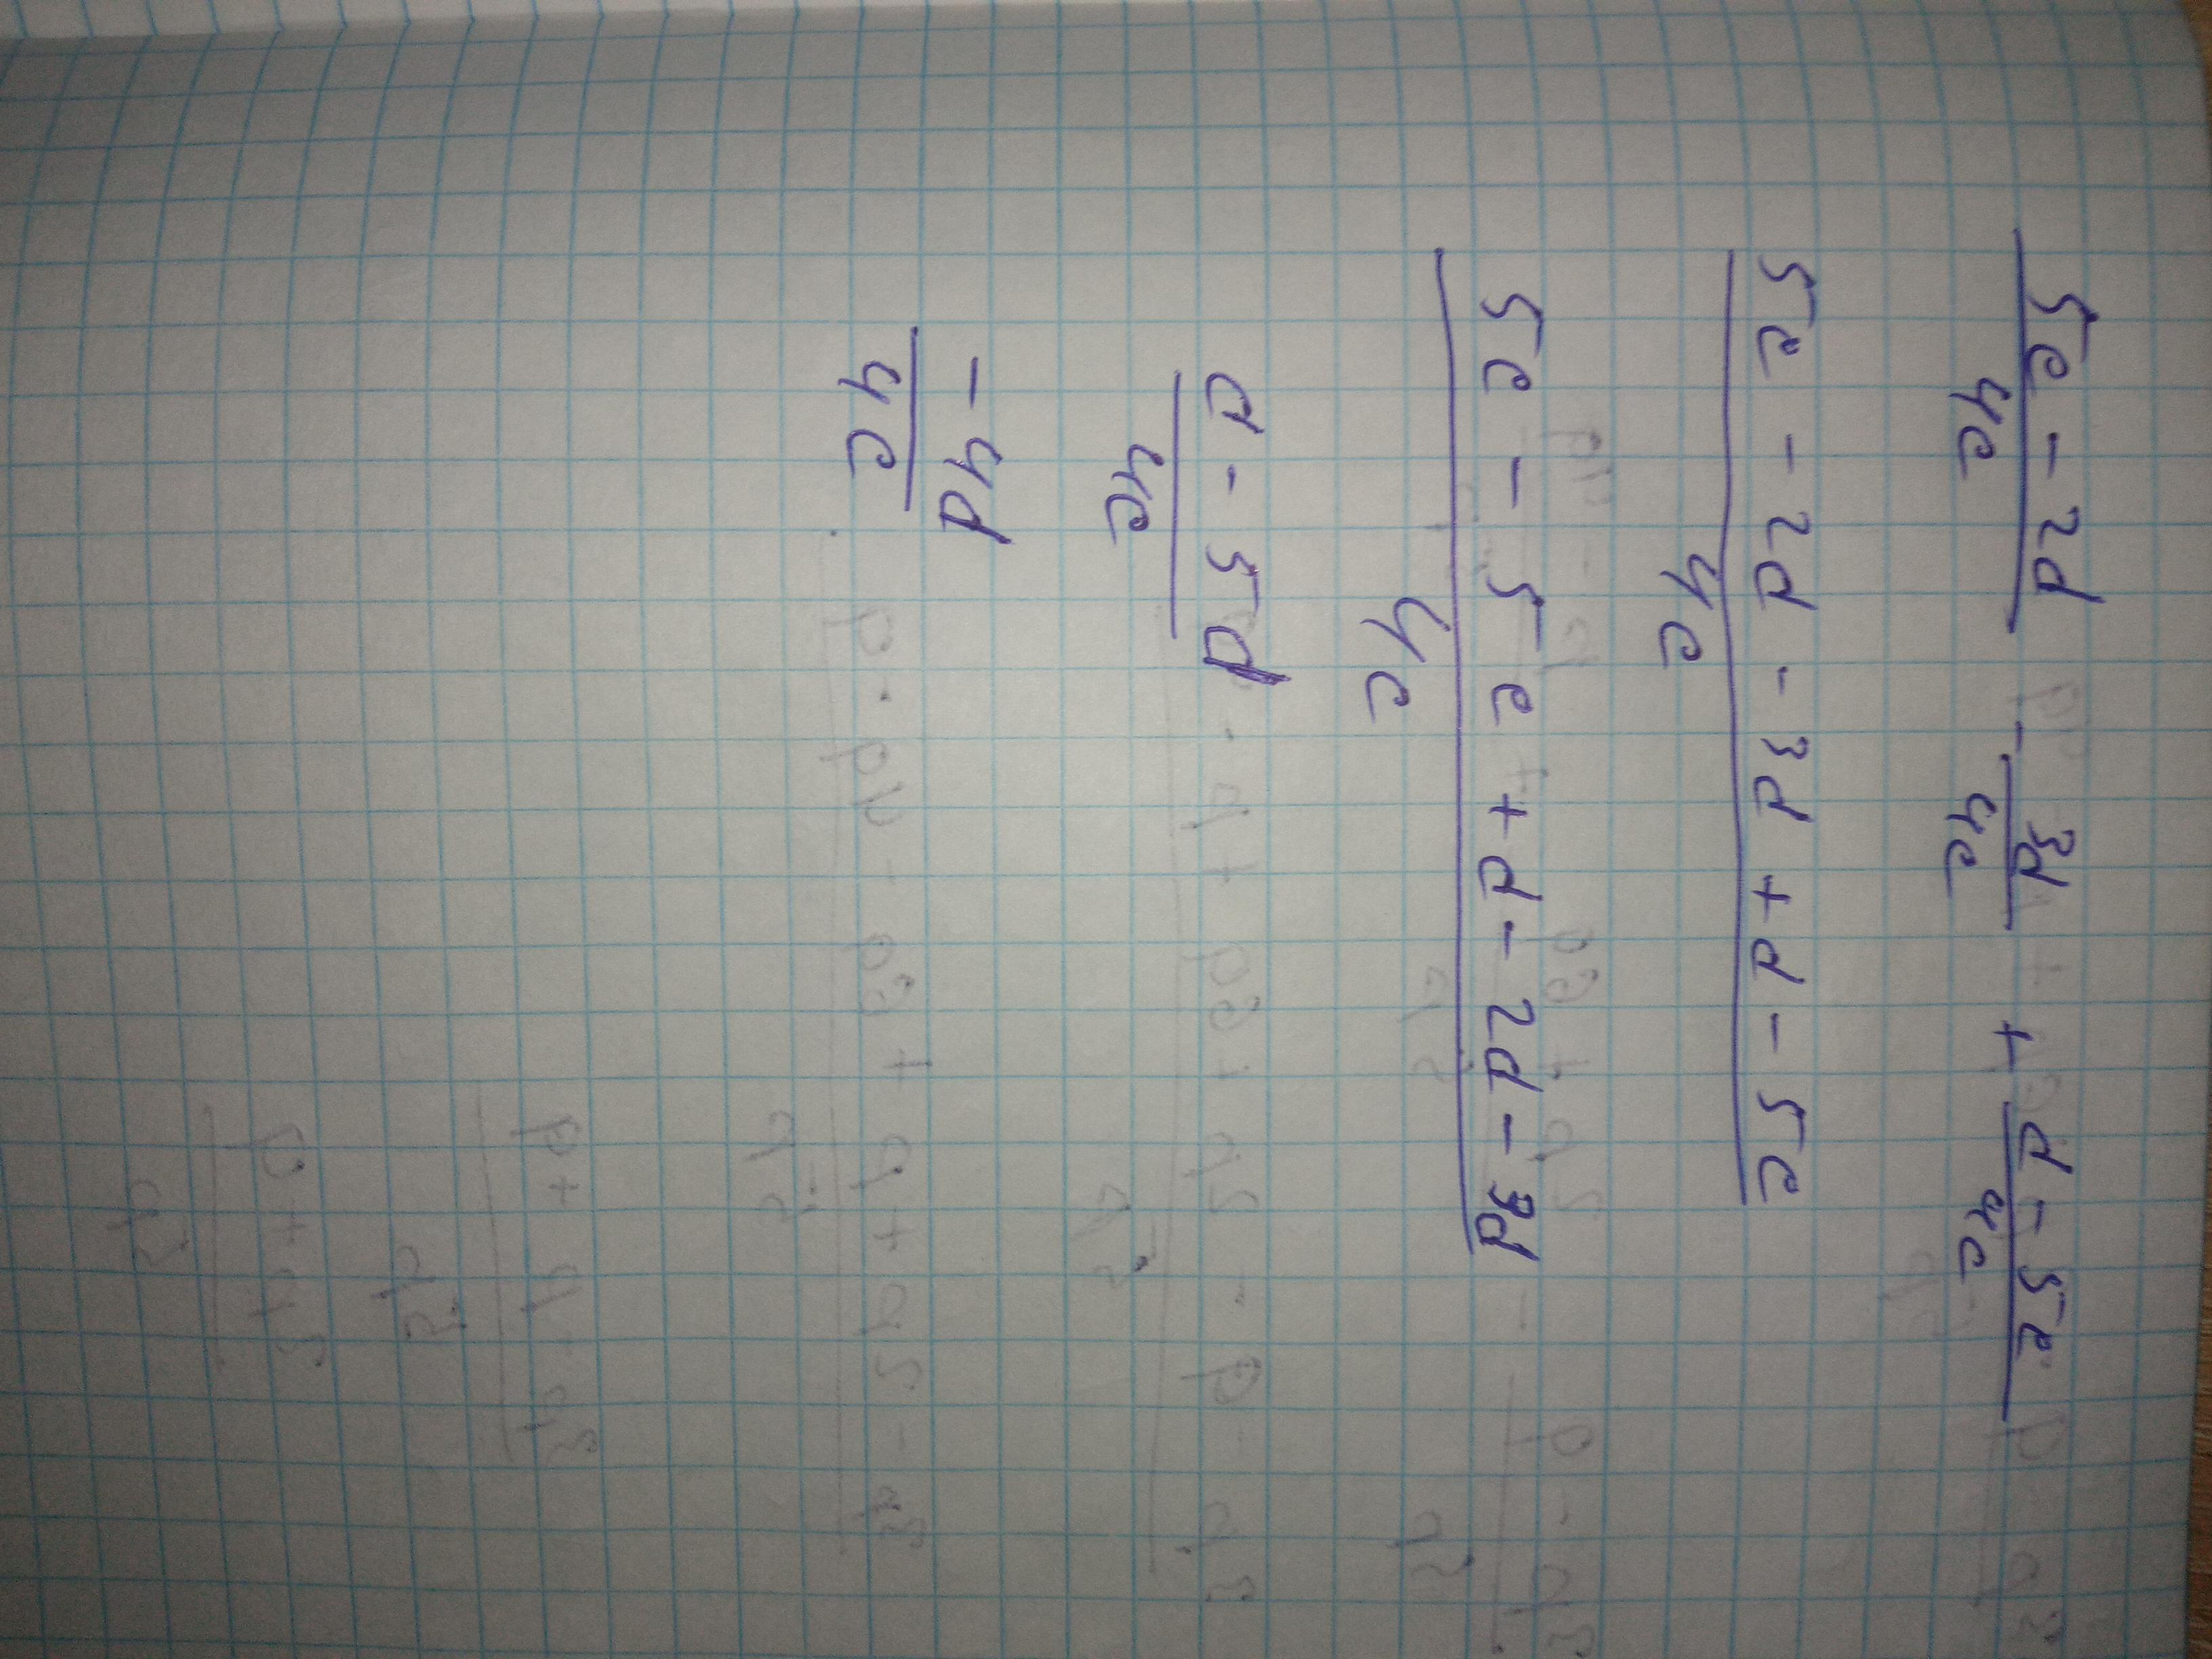 5c - 2d / 4c - 3d / 4c + d - 5c / 4c
5c - 2d - 3d + d - 5c / 4c
5c - 5c + d - 2d - 3d / 4c
d - 5d / 4c
- 4d / 4c